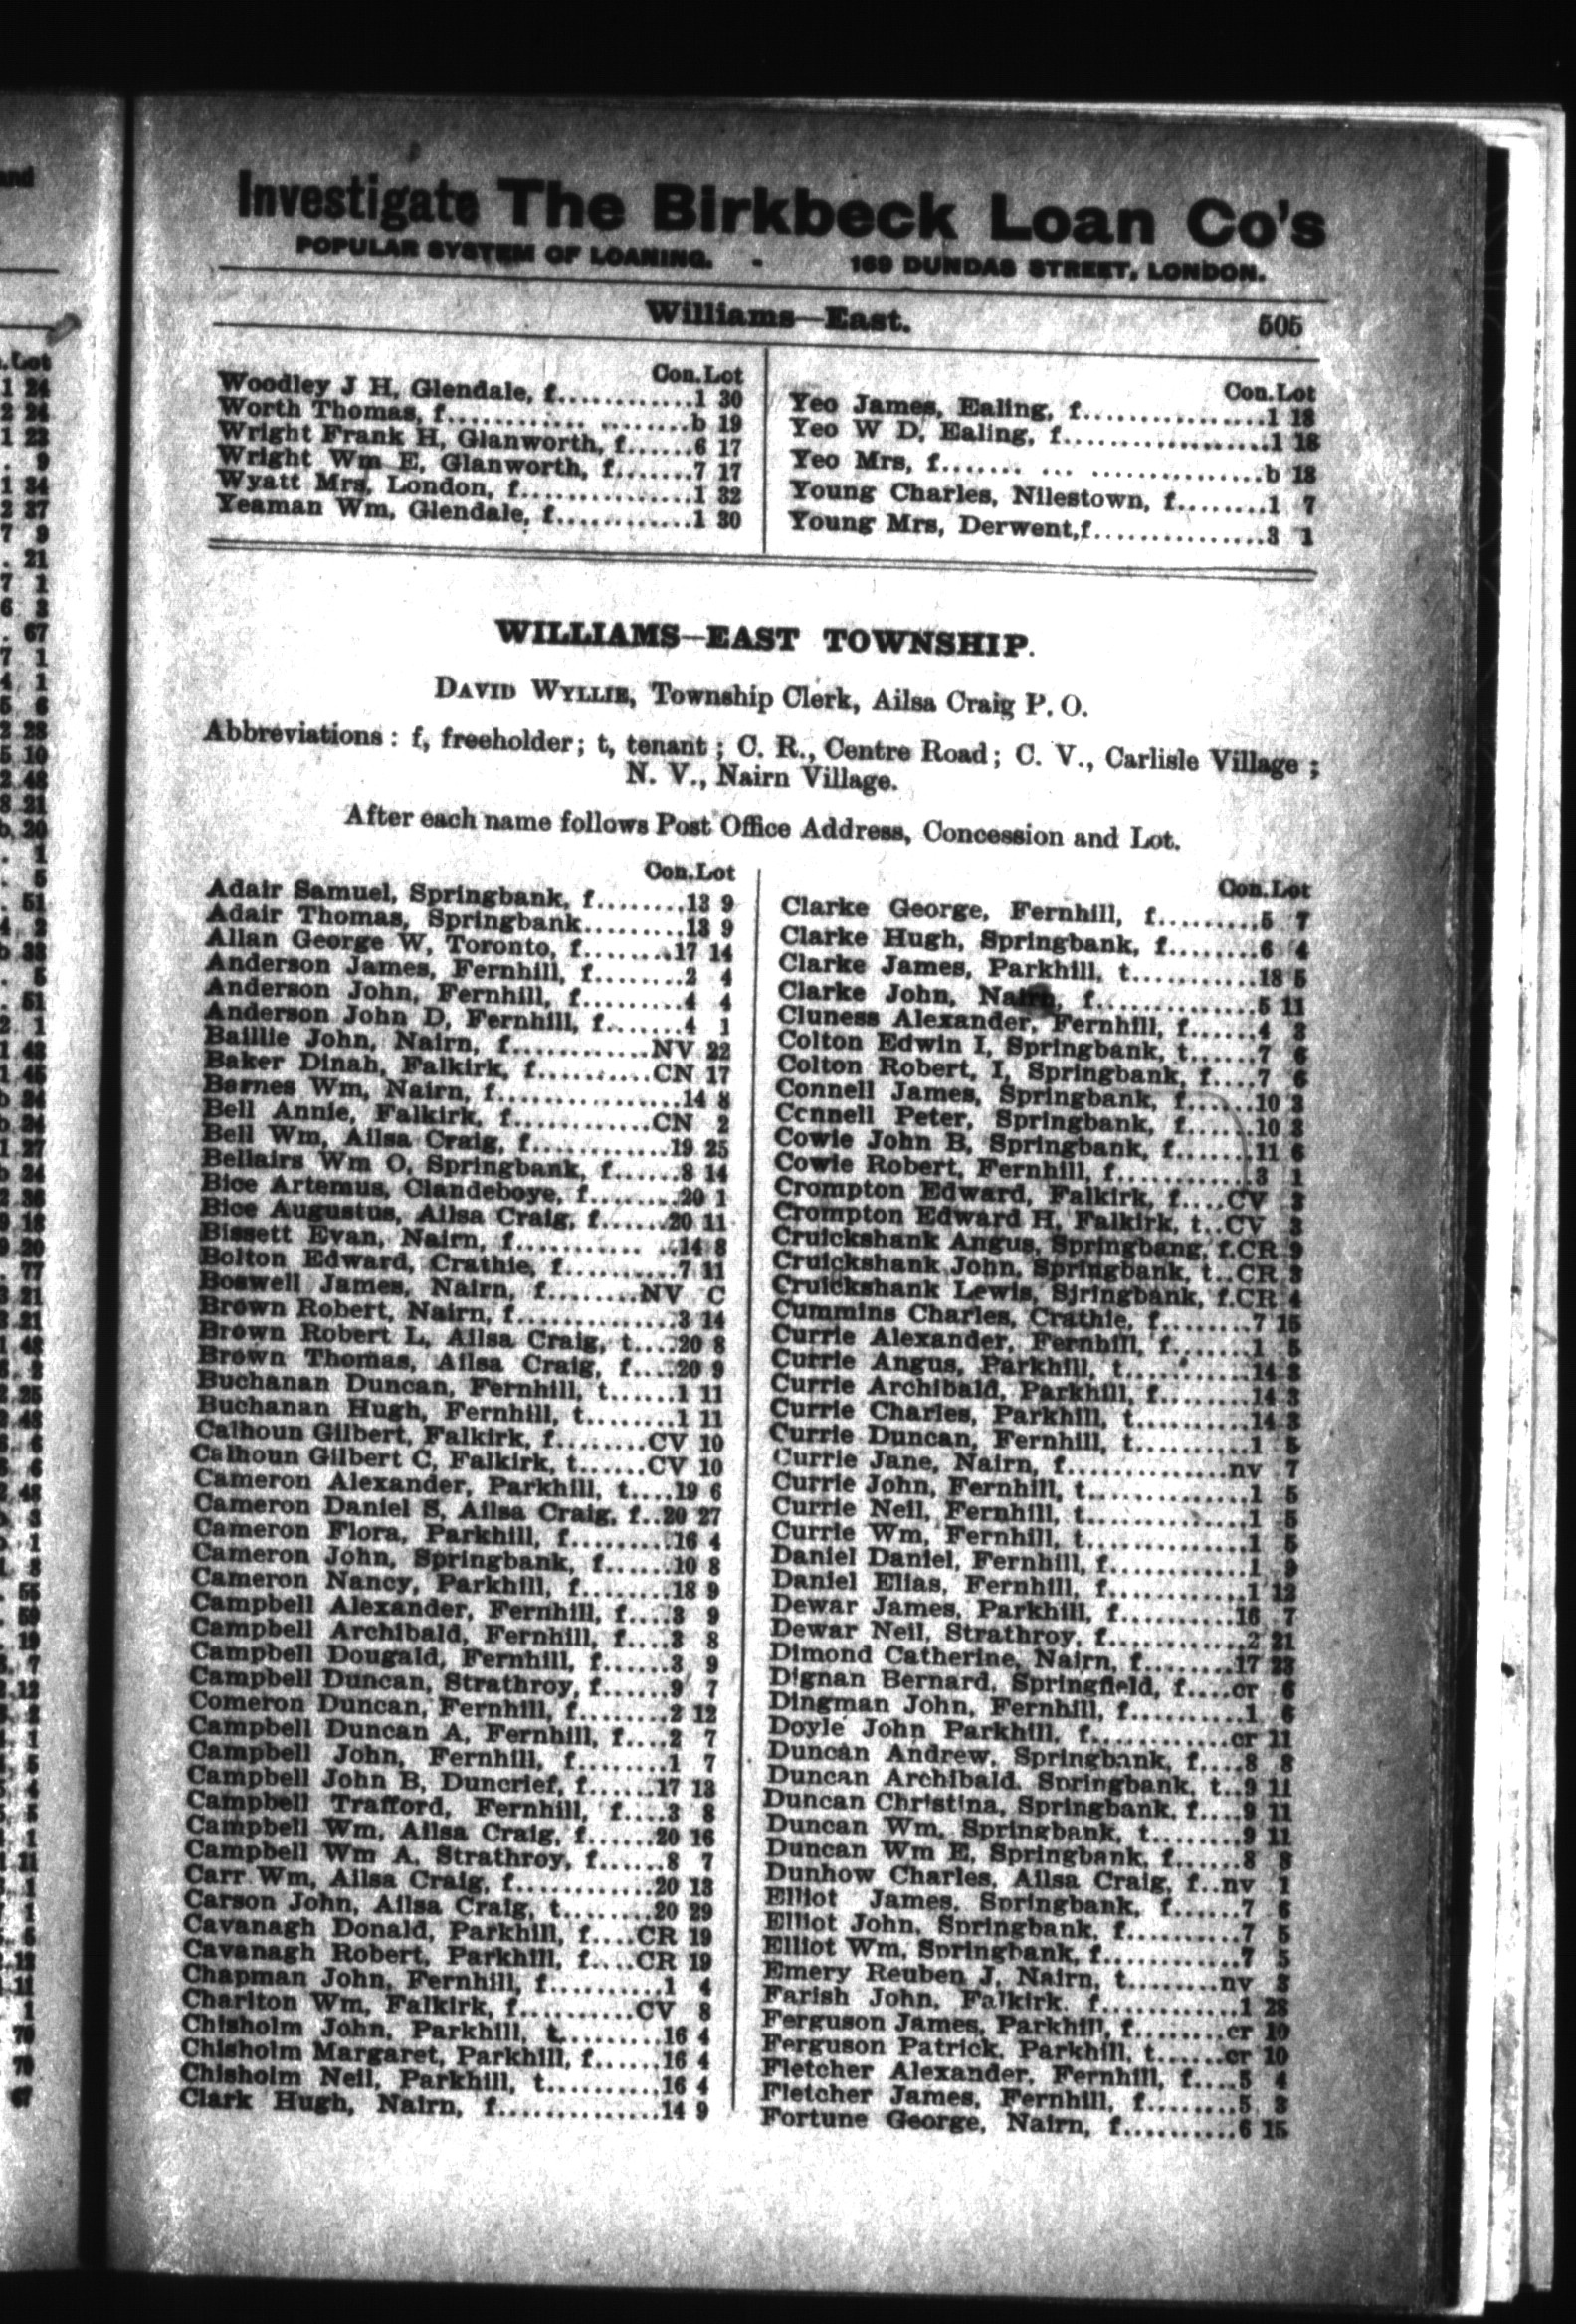 Investigate The Birkbeck Loan Co's
POPULAR SYSTEM OF LOANING. - 169 DUNDAS STREET, LONDON.
Williams—East. 505
Con.Lot
Woodley J H, Glendale, f.............1 30
Worth Thomas, f............. .........b 19
Wright Frank H, Glanworth, f......6 17
Wright Wm E, Glanworth, f.......7 17
Wyatt Mrs, London, f................1 32
Yeaman Wm, Glendale, f............1 30
Con.Lot
Yeo James, Ealing, f.................1 18
Yeo W D, Ealing, f...................1 18
Yeo Mrs, f....... ... .................b 18
Young Charles, Nilestown, f.........1 7
Young Mrs, Derwent,f................3 1
WILLIAMS—EAST TOWNSHIP.
DAVID WYLLIE, Township Clerk, Ailsa Craig P. O.
Abbreviations : f, freeholder; t, tenant ; C. R., Centre Road; C. V., Carlisle Village ;
N. V., Nairn Village.
After each name follows Post Office Address, Concession and Lot.
Con.Lot
Adair Samuel, Springbank, f........13 9
Adair Thomas, Springbank..........13 9
Allan George W, Toronto, f........17 14
Anderson James, Fernhill, f........2 4
Anderson John, Fernhill, f..........4 4
Anderson John D, Fernhill, f.......4 1
Baillie John, Nairn, f............NV 22
Baker Dinah, Falkirk, f..........CN 17
Barnes Wm, Nairn, f................14 8
Bell Annie, Falkirk, f............CN 2
Bell Wm, Ailsa Craig, f............19 25
Bellairs Wm O, Springbank, f......8 14
Bice Artemus, Clandeboye, f........20 1
Bice Augustus, Ailsa Craig, f......20 11
Bissett Evan, Nairn, f........... ..14 8
Bolton Edward, Crathie, f..........7 11
Boswell James, Nairn, f........NV C
Brown Robert, Nairn, f..............3 14
Brown Robert L, Ailsa Craig, t....20 8
Brown Thomas, Ailsa Craig, f....20 9
Buchanan Duncan, Fernhill, t......1 11
Buchanan Hugh, Fernhill, t........1 11
Calhoun Gilbert, Falkirk, f........CV 10
Calhoun Gilbert C, Falkirk, t......CV 10
Cameron Alexander, Parkhill, t....19 6
Cameron Daniel S, Ailsa Craig, f..20 27
Cameron Flora, Parkhill, f.........16 4
Cameron John, Springbank, f......10 8
Cameron Nancy, Parkhill, f........18 9
Campbell Alexander, Fernhill, f....3 9
Campbell Archibald, Fernhill, f....3 8
Campbell Dougald, Fernhill, f......3 9
Campbell Duncan, Strathroy, f......9 7
Comeron Duncan, Fernhill, f.......2 12
Campbell Duncan A, Fernhill, f....2 7
Campbell John, Fernhill, f........1 7
Campbell John B, Duncrief, f......17 13
Campbell Trafford, Fernhill, f....3 8
Campbell Wm, Ailsa Craig, f......20 16
Campbell Wm A, Strathroy, f......8 7
Carr Wm, Ailsa Craig, f............20 13
Carson John, Ailsa Craig, t........20 29
Cavanagh Donald, Parkhill, f....CR 19
Cavanagh Robert, Parkhill, f....CR 19
Chapman John, Fernhill, f..........1 4
Charlton Wm, Falkirk, f..........CV 8
Chisholm John, Parkhill, t.........16 4
Chisholm Margaret, Parkhill, f......16 4
Chisholm Neil, Parkhill, t..........16 4
Clark Hugh, Nairn, f...............14 9
Con.Lot
Clarke George, Fernhill, f.........5 7
Clarke Hugh, Springbank, f........6 4
Clarke James, Parkhill, t...........18 5
Clarke John, Nairn, f..............5 11
Cluness Alexander, Fernhill, f......4 3
Colton Edwin I, Springbank, t......7 6
Colton Robert, I, Springbank, f....7 6
Connell James, Springbank, f......10 3
Ccnnell Peter, Springbank, f......10 3
Cowie John B, Springbank, f.......11 6
Cowie Robert, Fernhill, f............3 1
Crompton Edward, Falkirk, f....CV 3
Crompton Edward H, Falkirk, t..CV 3
Cruickshank Angus, Springbang, f.CR 9
Cruickshank John, Springbank, t..CR 3
Cruickshank Lewis, Sjringbank, f.CR 4
Cummins Charles, Crathie, f........7 15
Currie Alexander, Fernhill, f.......1 5
Currie Angus, Parkhill, t...........14 3
Currie Archibald, Parkhill, f........14 3
Currie Charles, Parkhill, t..........14 3
Currie Duncan, Fernhill, t..........1 5
Currie Jane, Nairn, f..............nv 7
Currie John, Fernhill, t..............1 5
Currie Neil, Fernhill, t..............1 5
Currie Wm, Fernhill, t..............1 5
Daniel Daniel, Fernhill, f............1 9
Daniel Elias, Fernhill, f............1 12
Dewar James, Parkhill, f..........16 7
Dewar Neil, Strathroy, f............2 21
Dimond Catherine, Nairn, f........17 23
Dignan Bernard, Springfield, f....cr 6
Dingman John, Fernhill, f..........1 6
Doyle John Parkhill, f............cr 11
Duncan Andrew, Springbank, f....8 8
Duncan Archibald, Springbank, t..9 11
Duncan Christina, Springbank, f....9 11
Duncan Wm, Springbank, t........9 11
Duncan Wm E, Springbank, f......8 8
Dunhow Charles, Ailsa Craig, f..nv 1
Elliot James, Springbank, f......7 6
Elliot John, Springbank, f..........7 5
Elliot Wm, Springbank, f............7 5
Emery Reuben J, Nairn, t........nv 3
Farish John, Falkirk, f............1 28
Ferguson James, Parkhill, f........cr 10
Ferguson Patrick, Parkhill, t......cr 10
Fletcher Alexander, Fernhill, f....5 4
Fletcher James, Fernhill, f........5 3
Fortune George, Nairn, f..........6 15